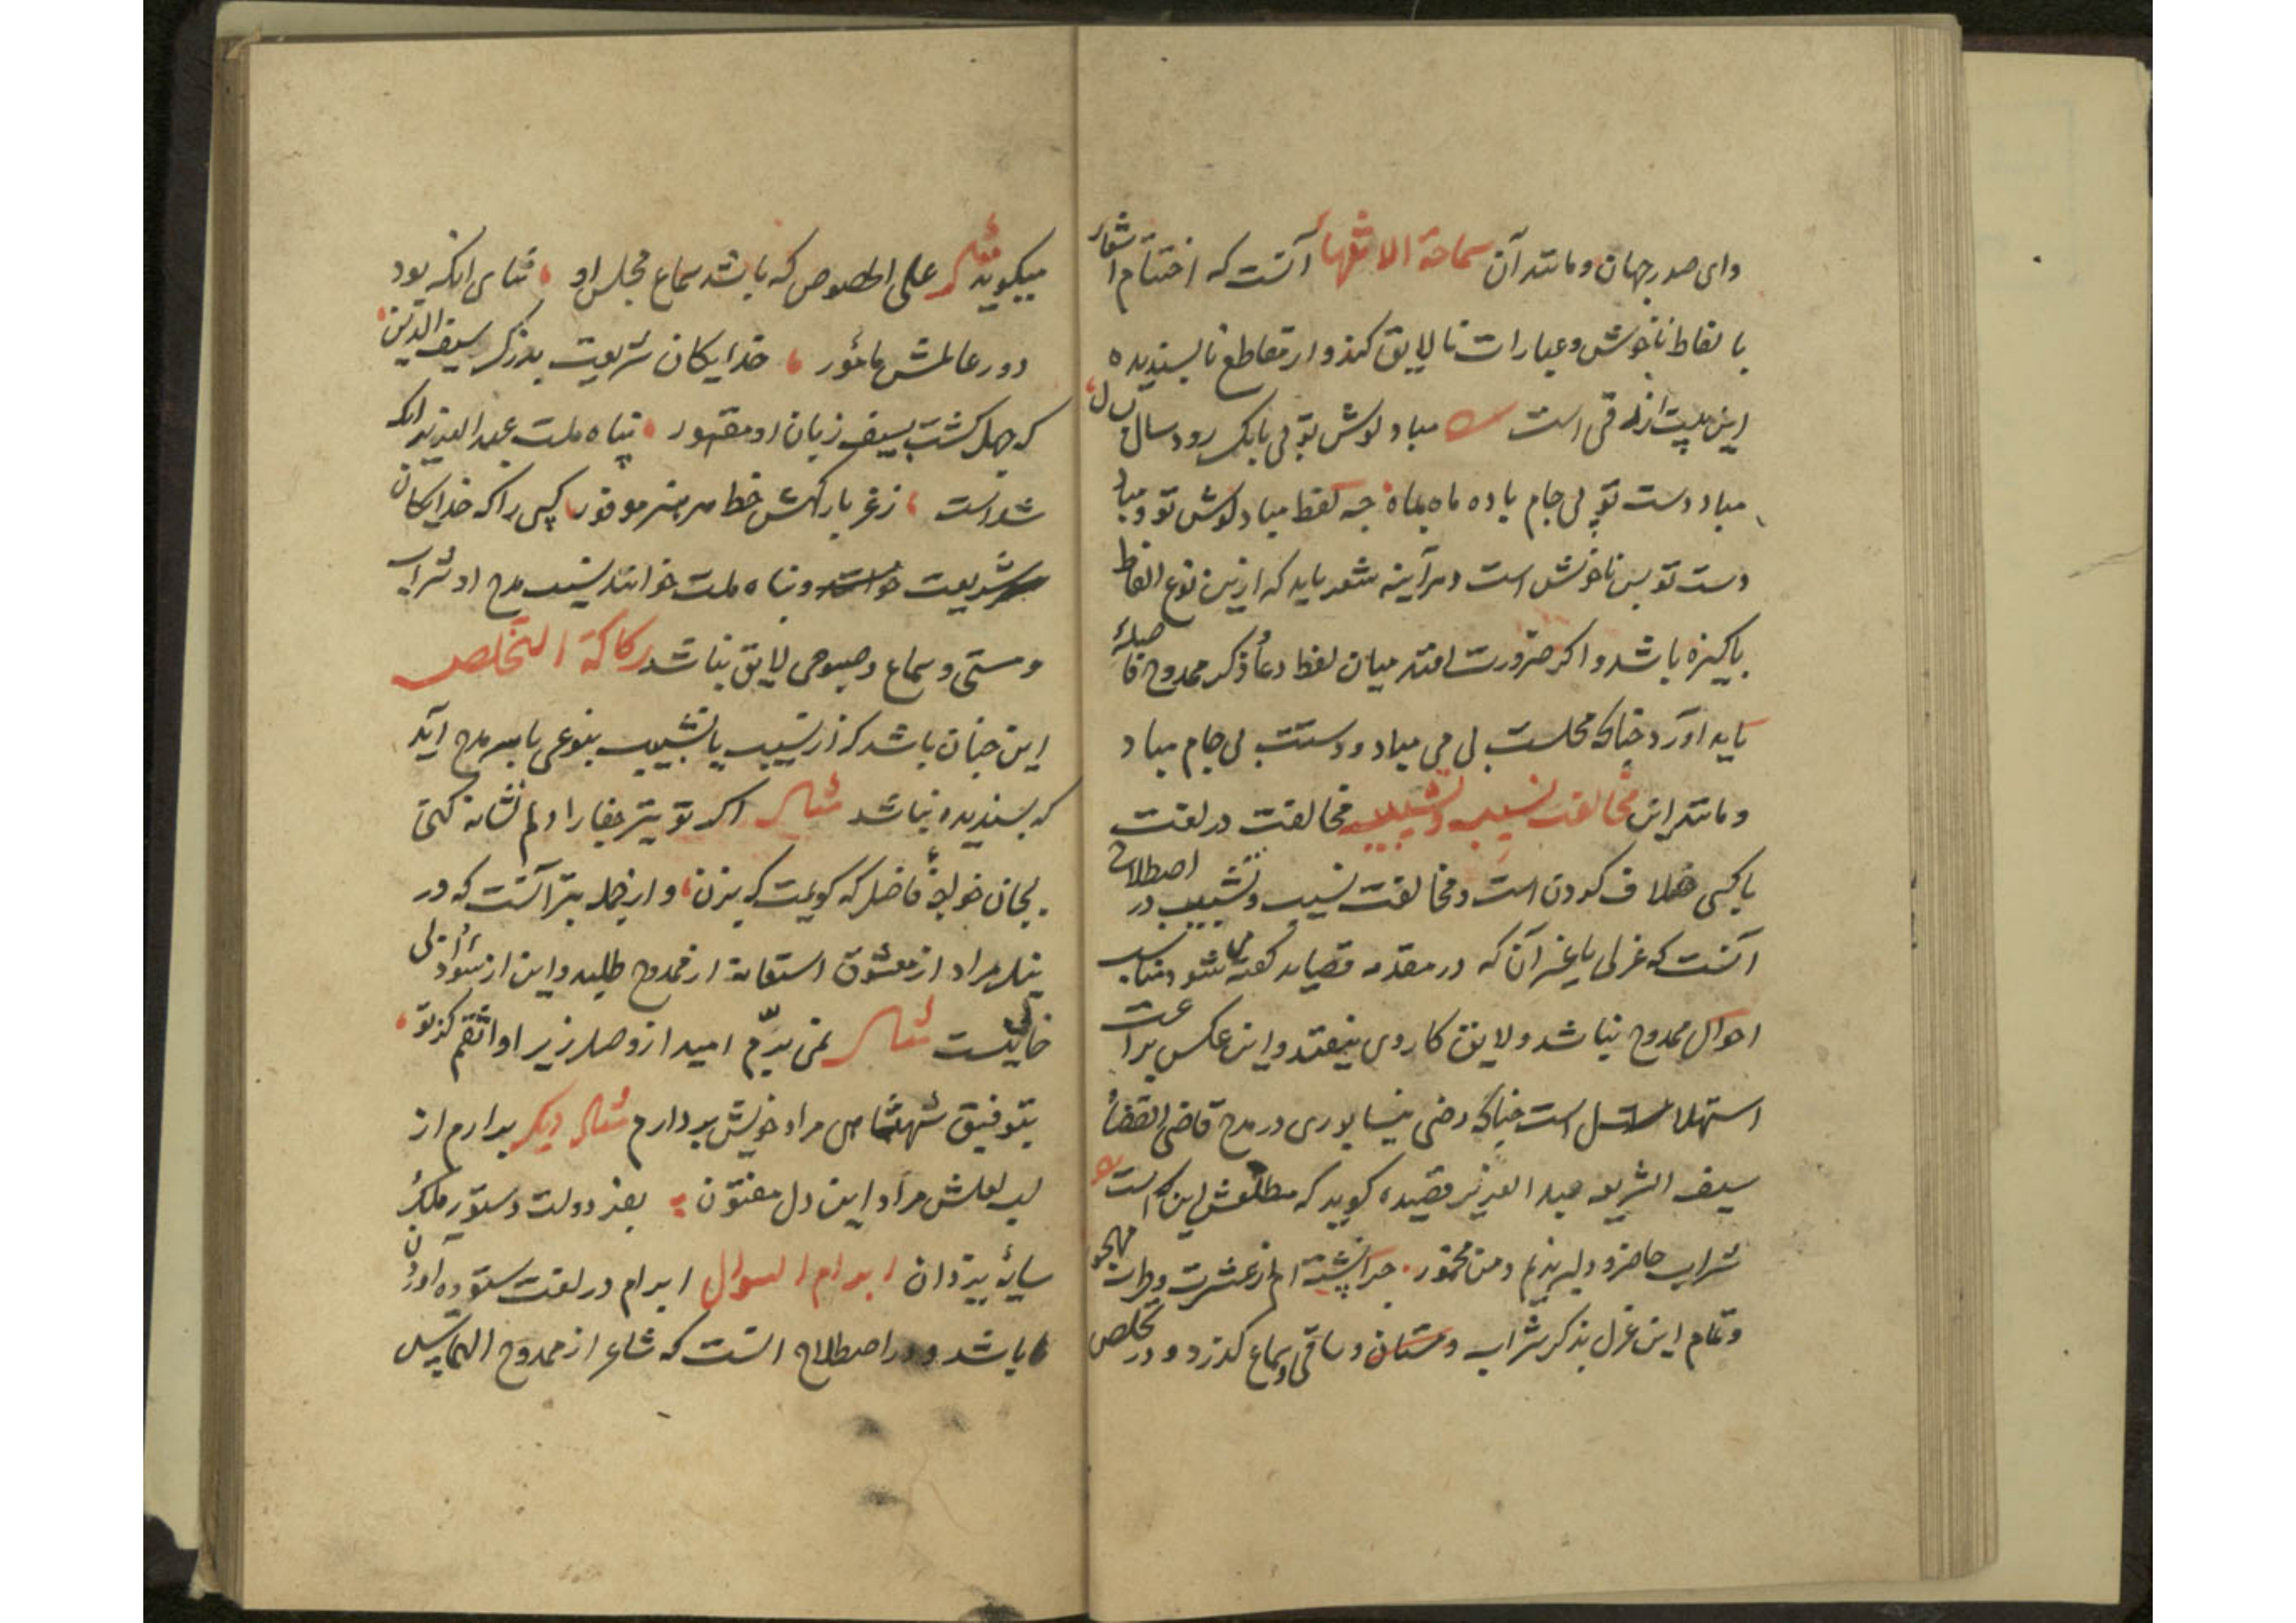 وای صدر جهان و مانند آن سماجة الانتهاء آنست که اختتام اشعار
بالفاظ ناخوش و عبارات نالایق کند و از مقاطع ناپسندیده
این بیت ازرقی است مباد گوش تو بی بانک رود سال بسال
مباد دست تو بی جام باده ماه بماه چه لفظ مباد گوش تو و مباد
دست تو بس ناخوش است و هرآینه شعر باید که ازین نوع الفاظ
پاکیزه باشد و اگر ضرورت افتد میان لفظ دعا و ذکر ممدوح فاصله
باید آورد چنانکه مجلست بی می مباد و دستت بی جام مباد
و مانند این مخالفت نسیب و تشبیب مخالفت در لغت
با کسی خلاف کردن است و مخالفت نسیب و تشبیب در اصطلاح
آنست که غزلی یا غیر آن که در مقدمه قصاید گفته میشود مناسب
احوال ممدوح نباشد و لایق کار وی نیفتد و این عکس براعت
استهلال است چنانکه رضی نیشابوری در مدح قاضی القضاة
سیف الشریعه عبد العزیز قصیده گوید که مطلعش این است
شراب حاضر و دلبر ندیم و من مخمور چرا نشسته ام از عشرت و طرب مهجور
و تمام این غزل بذکر شراب و مستان و ساقی و سماع گذرد و در تخلص
میگوید مثال علی الخصوص که باشد سماع مجلس او ثنای انکه بود
دور عالمش مأمور خدایکان شریعت بزرگ سیف الدین
که جهل گشت بسیف زبان او مقهور پناه ملت عبد العزیز انکه
شداست ز عز بارگهش خط هر هنر موفور کسی را که خدایکان
شریعت و پناه ملت خوانند نسیب مدح او شراب
و مستی و سماع و صبوحی لایق نباشد رکاکة التخلص
این چنان باشد که از نسیب یا تشبیب بنوعی با سر مدح آید
که پسندیده نباشد مثال اگر تو تیر جفا را دلم نشانه کنی
بجان خواجه فاضل که گویمت که بزن و ازین جمله بتر آنست که در
نیل مراد از معشوق استعانة از ممدوح طلبد و این از سؤ ادبی
خالی نیست مثال نمی برم امید از وصل زیرا واثقم کز تو
بتوفیق شهنشاهی مراد خویش بردارم مثال دیگر برارم از
لب لعلش مراد این دل مفتون بعز دولت دستور ملک
سایهٔ یزدان ابرام السوال ابرام در لغت ستوه آوردن
باشد و در اصطلاح انست که شاعر از ممدوح التماس